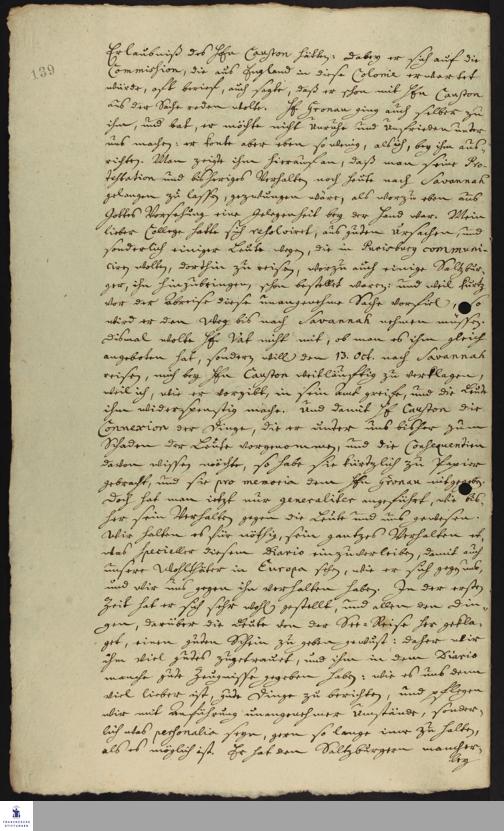 139
Erlaubniß des Hrn Causton hätten: Dabey er sich auf die
Commission, die aus England in diese Colonie erwartet
würde, oft berief, auch sagte, daß er schon mit Hrn Causton
aus der Sache reden wolte. Hr Gronau ging auch selber zu
ihm, und bat, er möchte nicht Unruhe und Unfrieden unter
uns machen: er konte aber eben so wenig, als ich, bey ihm aus-
richten. Man zeigte ihm hierauf an, daß man seine Pro-
testation und bißheriges Verhalten noch heute nach Savannah
gelangen zu lassen, gezwungen wäre, als worzu eben aus
Gottes Vorsehung eine Gelegenheit bey der Hand war. Mein
lieber College hatte sich resolviret, aus guten Ursachen, und
sonderlich einiger Leute wegen, die in Purisburg communi-
ciren wolten, dorthin zu reisen, worzu auch einige Saltzbur-
ger, ihn hinzubringen, schon bestellt waren: und weil kurtz
vor der Abreise diese unangenehme Sache vorfiel, so
wird er den Weg bis nach Savannah nehmen müssen.
dismal wolte Hr Vat nicht mit, ob man es ihm gleich
angeboten hat, sondern will den 13. Oct. nach Savannah
reisen, mich bey Hrn Causton weitläuftig zu verklagen,
weil ich, wie er vorgibt, in sein Amt greiffe, und die Leute
ihm widerspenstig mache. Und damit Hr Causton die
Connexion der Dinge, die er unter uns bisher zum
Schaden der Leute vorgenommen, und die Consequentien
davon wissen möchte, so habe sie kürtzlich zu Papier
gebracht, und sie pro memoria dem Hrn Gronau mitgegeben.
Doch hat man jetzt nur generaliter angeführt, wie bis-
her sein Verhalten gegen die Leute und uns gewesen.
Wir halten es für nöthig, sein gantzes Verhalten et-
was specieller diesem Diario einzuverleiben, damit auch
unsere Wohlthäter in Europa sehen, wie er sich gegen uns,
und wir uns gegen ihn verhalten haben. In der ersten
Zeit hat er sich sehr wohl gestellt, und allen den Din-
gen, darüber die Leute von der See-Reise her gekla-
get, einen guten Schein zu geben gewust: daher wir
ihm viel gutes zugetrauet, und ihm in dem Diario
manche gute Zeugnisse gegeben haben: wie es uns denn
viel lieber ist, gute Dinge zu berichten, und pflegen
wir mit Anführung unangenehmer Umstände, sonder-
lich was personalia seyn, gern so lange inne zu halten,
als es möglich ist. Er hat den Saltzburgern mancher-
ley
FRANCKESCHE
STIFTUNGEN